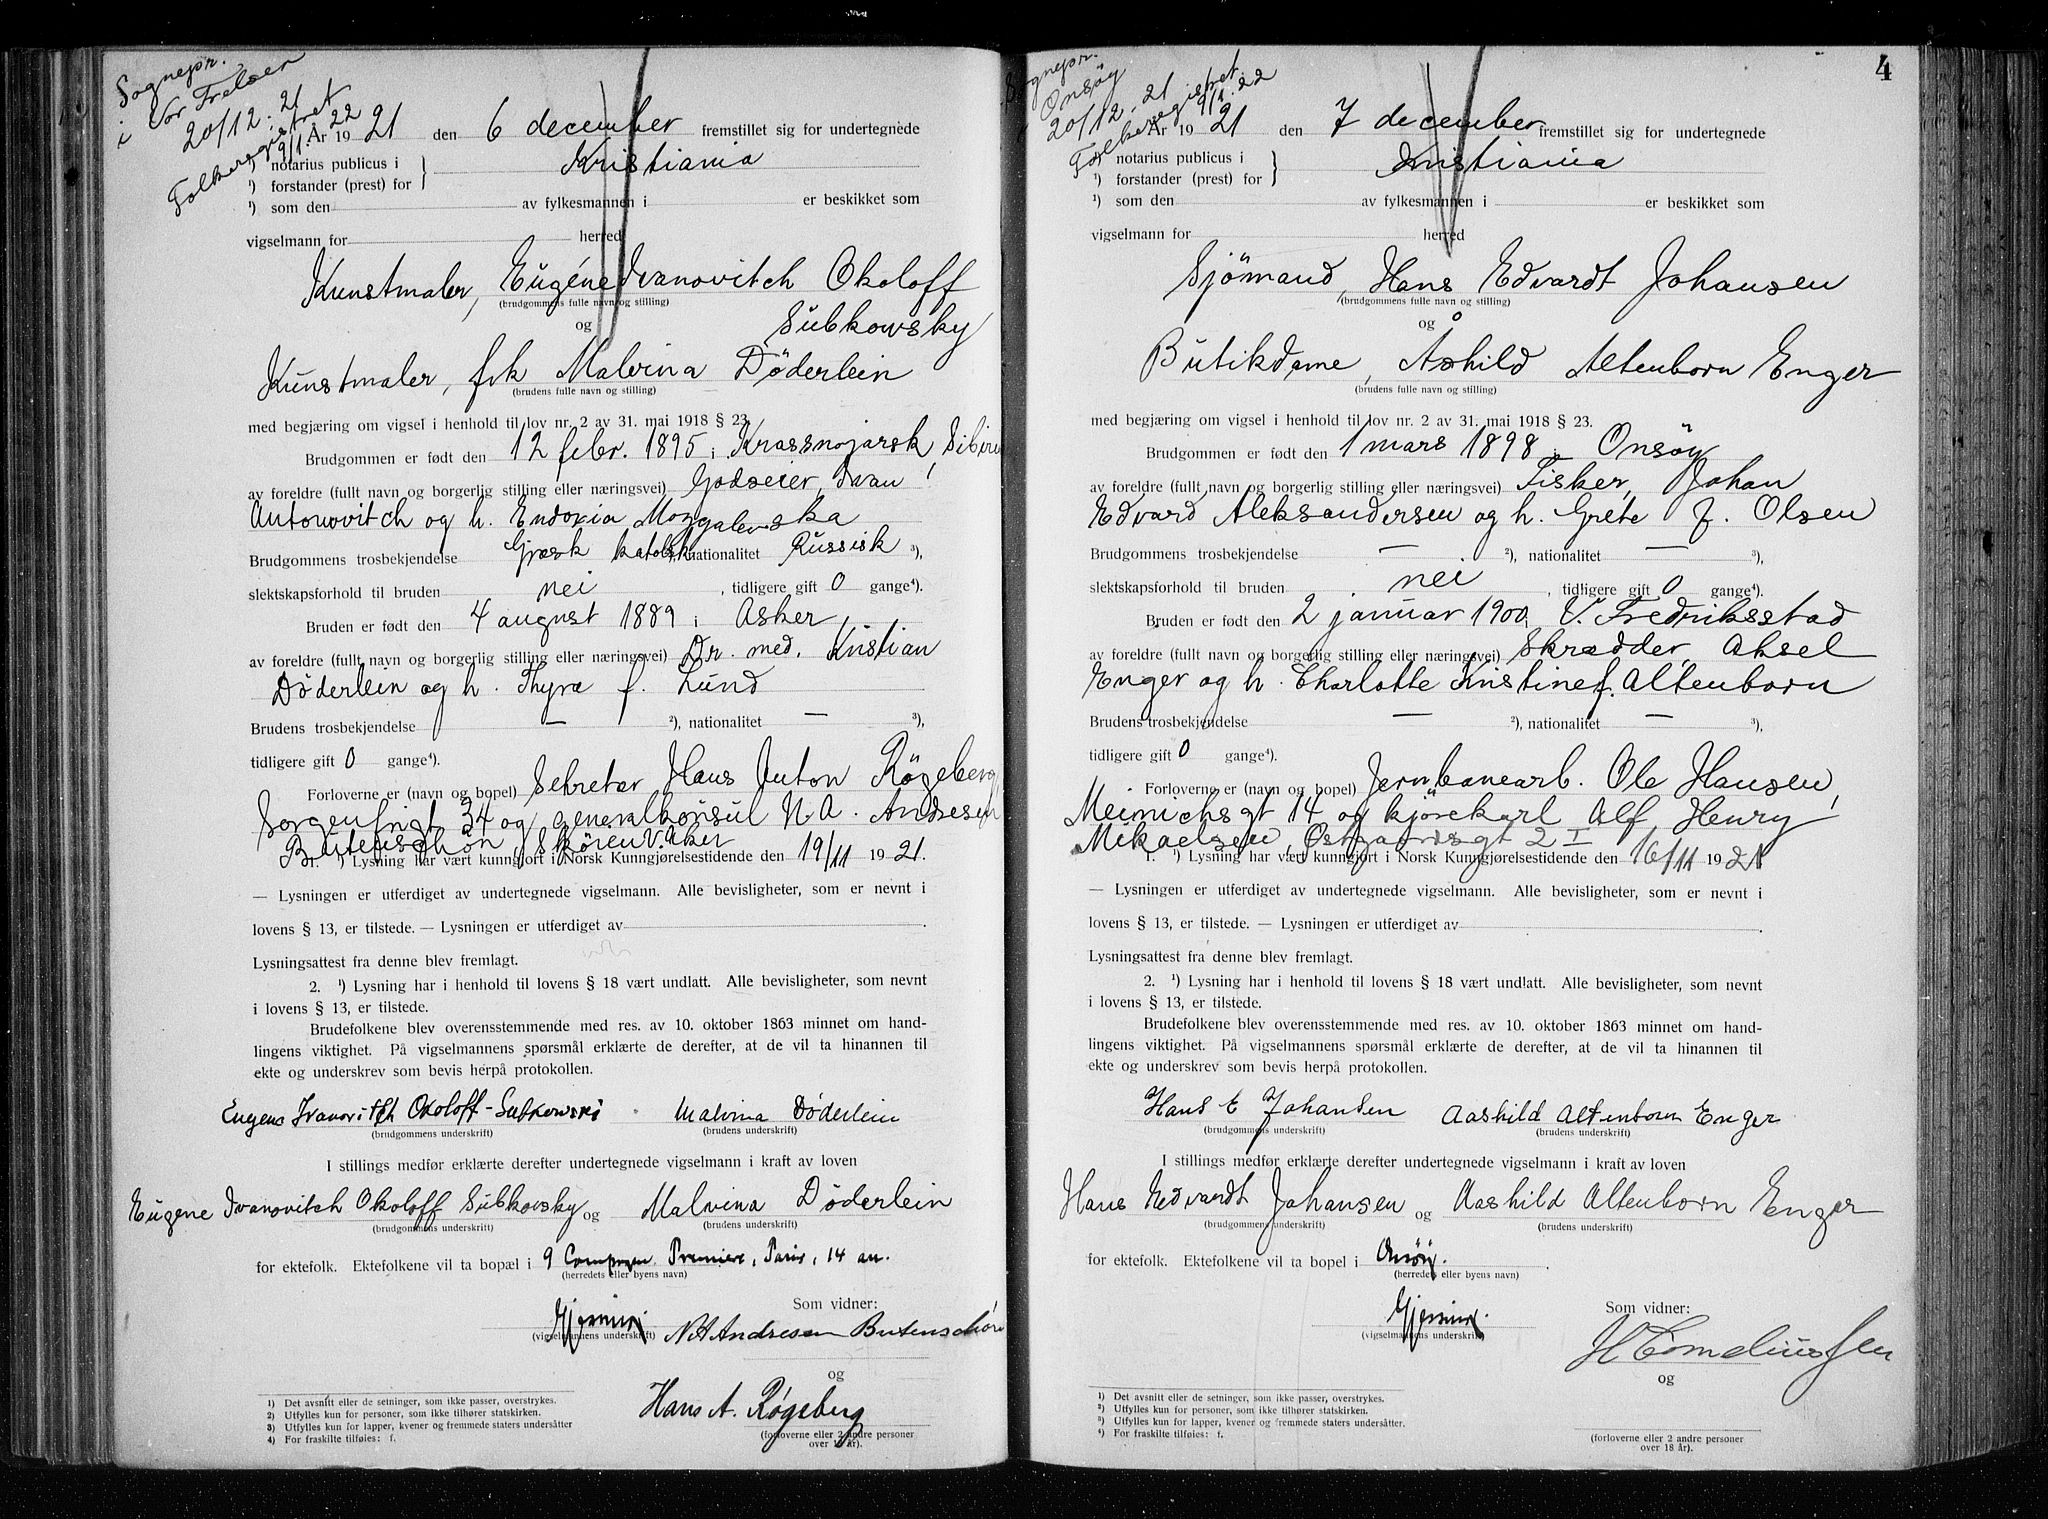 Sognepr.
i Vor Frelser
20/12. 21
Folkeregistret
9/1. 22
År 1921 den 6 december fremstillet sig for undertegnede
¹) notarius publicus i } Kristiania
¹) forstander (prest) for
¹) som den av fylkesmannen i er beskikket som
vigselmann for herred
Kunstmaler, Eugéne Ivanovitch Okoloff
(brudgommens fulle navn og stilling)
og Subkowsky
Kunstmaler, frk Malvina Döderlein
(brudens fulle navn og stilling)
med begjæring om vigsel i henhold til lov nr. 2 av 31. mai 1918 § 23.
Brudgommen er født den 12 febr. 1895 i Krassnojarsk, Sibirien
av foreldre (fullt navn og borgerlig stilling eller næringsvei) Godseier, Ivan
Antonovitch og h. Endoxia Mozgalevska
Brudgommens trosbekjendelse Græsk katolsk nationalitet Russisk ³),
slektskapsforhold til bruden nei, tidligere gift 0 gange⁴).
Bruden er født den 4 august 1889 i Asker,
av foreldre (fullt navn og borgerlig stilling eller næringsvei) Dr. med. Kristian
Döderlein og h. Thyra f. Lund
Brudens trosbekjendelse — ²), nationalitet — ³),
tidligere gift 0 gange⁴).
Forloverne er (navn og bopel) Sekretær Hans Anton Røgeberg,
Sorgenfrigt 34 og generalkonsul N. A. Andresen
Butenschön, Skøien V. Aker
1. ¹) Lysning har vært kunngjort i Norsk Kunngjørelsestidende den 19/11 1921.
— Lysningen er utferdiget av undertegnede vigselmann. Alle bevisligheter, som er nevnt i
lovens § 13, er tilstede. — Lysningen er utferdiget av
Lysningsattest fra denne blev fremlagt.
2. ¹) Lysning har i henhold til lovens § 18 vært undlatt. Alle bevisligheter, som nevnt
i lovens § 13, er tilstede.
Brudefolkene blev overensstemmende med res. av 10. oktober 1863 minnet om hand-
lingens viktighet. På vigselmannens spørsmål erklærte de derefter, at de vil ta hinannen til
ekte og underskrev som bevis herpå protokollen.
Eugene Ivanovitch Okoloff-Subkowski Malvina Døderlein
(brudgommens underskrift) (brudens underskrift)
I stillings medfør erklærte derefter undertegnede vigselmann i kraft av loven
Eugene Ivanovitch Okoloff Subkovsky og Malvina Døderlein
(brudgommens underskrift) (brudens underskrift)
for ektefolk. Ektefolkene vil ta bopæl i 9 Campagne Première, Paris, 14 arr.
(herredets eller byens navn)
Som vidner:
N A Andresen Butenschön
(vigselmannens underskrift)
og
Hans A. Røgeberg
(forloverne eller 2 andre personer
over 18 år).
¹) Det avsnitt eller de setninger, som ikke passer, overstrykes.
²) Utfylles kun for personer, som ikke tilhører statskirken.
³) Utfylles kun for lapper, kvener og fremmede staters undersåtter
⁴) For fraskilte tilføies: f.
4
Sognepr.
i Onsöy
20/12. 21
Folkeregistret
9/1. 22
År 1921 den 7 december fremstillet sig for undertegnede
notarius publicus i } Kristiania
¹) forstander (prest) for
¹) som den av fylkesmannen i er beskikket som
vigselmann for herred
Sjömand, Hans Edvardt Johansen
(brudgommens fulle navn og stilling)
og
Butikdame, Åshild Altenborn Enger
(brudens fulle navn og stilling)
med begjæring om vigsel i henhold til lov nr. 2 av 31. mai 1918 § 23.
Brudgommen er født den 1 mars 1898 i Onsöy
av foreldre (fullt navn og borgerlig stilling eller næringsvei) Fisker, Johan
Edvard Aleksandersen og h. Grete f. Olsen
Brudgommens trosbekjendelse — ²), nationalitet — ³),
slektskapsforhold til bruden nei, tidligere gift 0 gange⁴).
Bruden er født den 2 januar 1900 i V. Fredriksstad
av foreldre (fullt navn og borgerlig stilling eller næringsvei) Skrædder Aksel
Enger og h. Charlotte Kristine f. Altenborn
Brudens trosbekjendelse — ²), nationalitet — ³),
tidligere gift 0 gange⁴).
Forloverne er (navn og bopel) Jernbanearb. Ole Hansen,
Meinichsgt 14 og kjörekarl Alf Henry
Mikaelsen, Østgaardsgt 2 I
1. ¹) Lysning har vært kunngjort i Norsk Kunngjørelsestidende den 16/11 1921
— Lysningen er utferdiget av undertegnede vigselmann. Alle bevisligheter, som er nevnt i
lovens § 13, er tilstede. — Lysningen er utferdiget av
Lysningsattest fra denne blev fremlagt.
2. ¹) Lysning har i henhold til lovens § 18 vært undlatt. Alle bevisligheter, som nevnt
i lovens § 13, er tilstede.
Brudefolkene blev overensstemmende med res. av 10. oktober 1863 minnet om hand-
lingens viktighet. På vigselmannens spørsmål erklærte de derefter, at de vil ta hinannen til
ekte og underskrev som bevis herpå protokollen.
Hans E Johansen Aashild Altenborn Enger
(brudgommens underskrift) (brudens underskrift)
I stillings medfør erklærte derefter undertegnede vigselmann i kraft av loven
Hans Edvardt Johansen og Aashild Altenborn Enger
(brudgommens underskrift) (brudens underskrift)
for ektefolk. Ektefolkene vil ta bopel i Onsöy.
(herredets eller byens navn)
Som vidner:
(vigselmannens underskrift)
H Corneliussen
og
(forloverne eller 2 andre personer
over 18 år).
¹) Det avsnitt eller de setninger, som ikke passer, overstrykes.
²) Utfylles kun for personer, som ikke tilhører statskirken.
³) Utfylles kun for lapper, kvener og fremmede staters undersåtter.
⁴) For fraskilte tilføies: f.